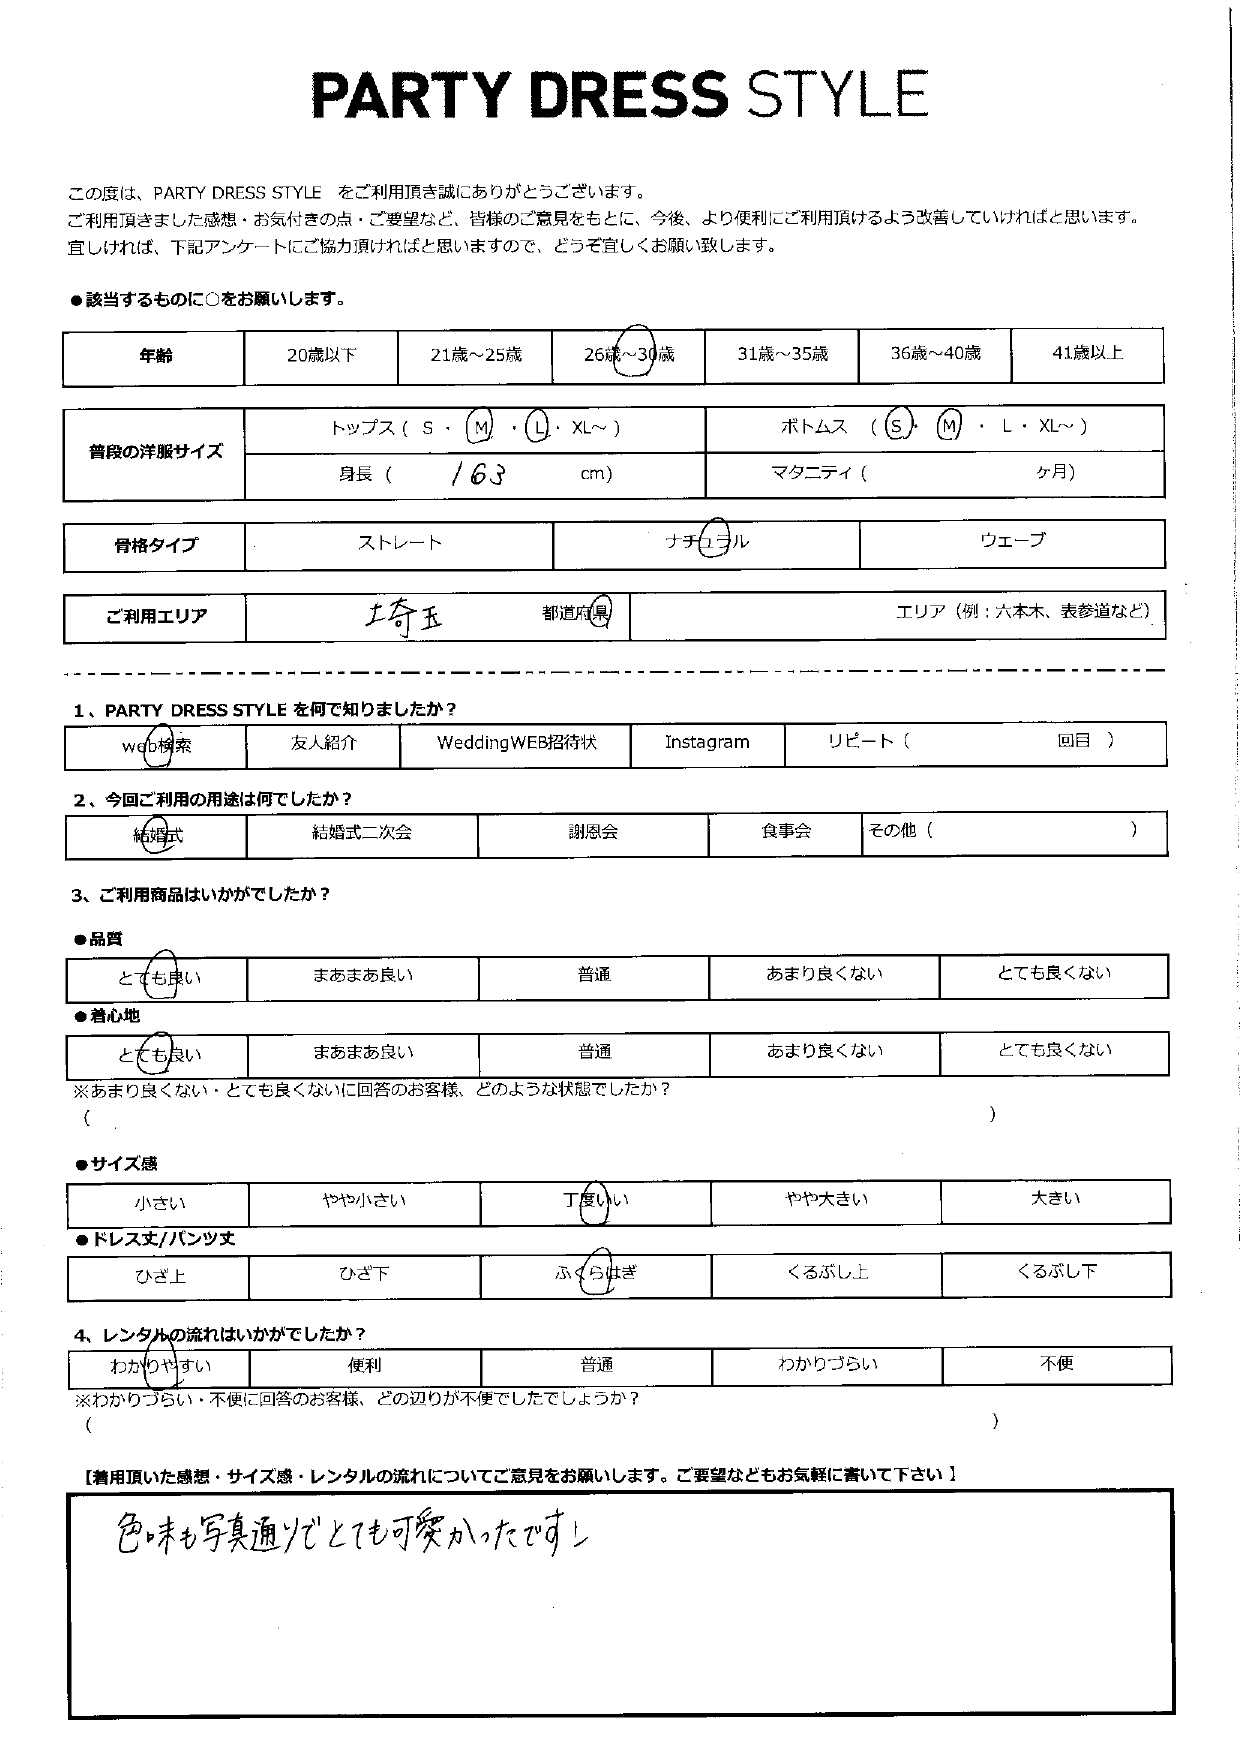 PARTY DRESS STYLE
この度は、PARTY DRESS STYLE　をご利用頂き誠にありがとうございます。
ご利用頂きました感想・お気付きの点・ご要望など、皆様のご意見をもとに、今後、より便利にご利用頂けるよう改善していければと思います。
宜しければ、下記アンケートにご協力頂ければと思いますので、どうぞ宜しくお願い致します。
●該当するものに○をお願いします。
年齢 20歳以下 21歳～25歳 26歳～30歳 31歳～35歳 36歳～40歳 41歳以上
普段の洋服サイズ トップス ( S ・ M ・ L ・ XL～ ) ボトムス ( S ・ M ・ L ・ XL～ )
身長 ( 163 cm) マタニティ ( ヶ月)
骨格タイプ ストレート ナチュラル ウェーブ
ご利用エリア 埼玉 都道府県 エリア（例：六本木、表参道など）
1、PARTY DRESS STYLE を何で知りましたか？
web検索 友人紹介 WeddingWEB招待状 Instagram リピート ( 回目 )
2、今回ご利用の用途は何でしたか？
結婚式 結婚式二次会 謝恩会 食事会 その他 ( )
3、ご利用商品はいかがでしたか？
●品質
とても良い まあまあ良い 普通 あまり良くない とても良くない
●着心地
とても良い まあまあ良い 普通 あまり良くない とても良くない
※あまり良くない・とても良くないに回答のお客様、どのような状態でしたか？
( )
●サイズ感
小さい やや小さい 丁度いい やや大きい 大きい
●ドレス丈/パンツ丈
ひざ上 ひざ下 ふくらはぎ くるぶし上 くるぶし下
4、レンタルの流れはいかがでしたか？
わかりやすい 便利 普通 わかりづらい 不便
※わかりづらい・不便に回答のお客様、どの辺りが不便でしたでしょうか？
( )
【着用頂いた感想・サイズ感・レンタルの流れについてご意見をお願いします。ご要望などもお気軽に書いて下さい 】
色味も写真通りでとても可愛かったですし